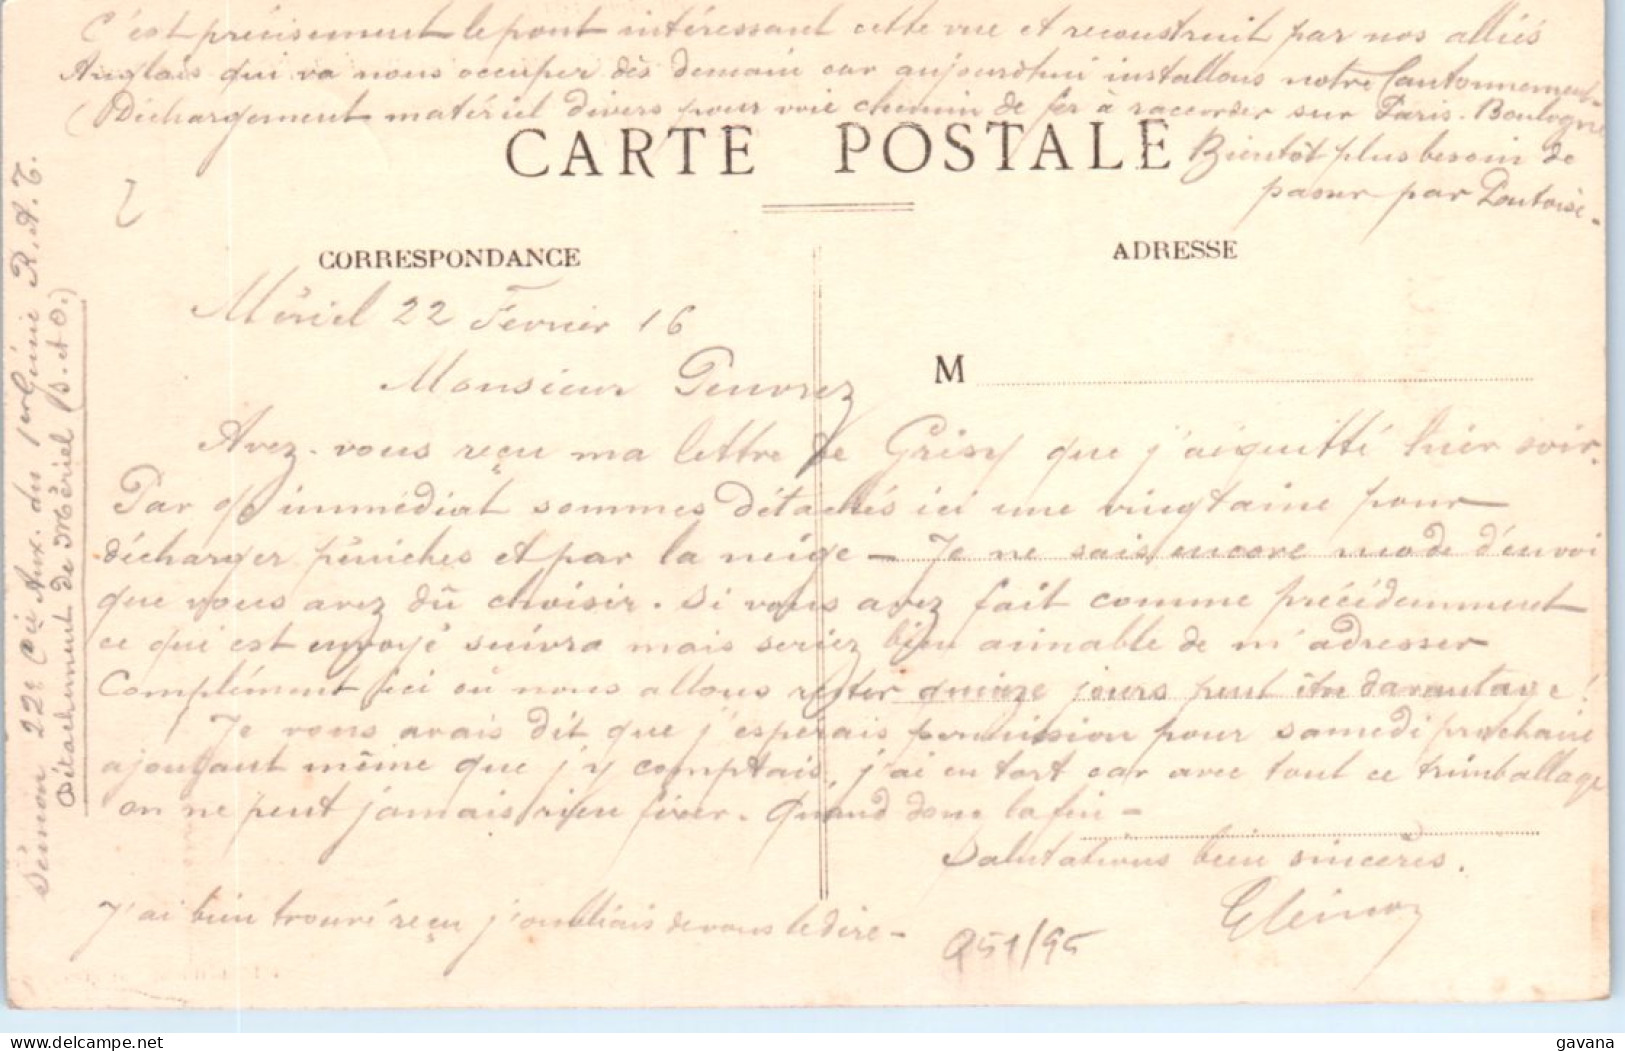 C'est précisément le pont intéressant cette vue et reconstruit par nos alliés
Anglais qui va nous occuper dès demain car aujourd'hui installons notre Cantonnement.
(Déchargement matériel divers pour voie chemin de fer à raccorder sur Paris-Boulogne
Bientôt plus besoin de
passer par Pontoise.
CARTE POSTALE
CORRESPONDANCE
ADRESSE
M
Mériel 22 Fevrier 16
Monsieur
Avez-vous reçu ma lettre de Grisy que j'ai quitté hier soir.
Par immédiat sommes détachés ici une vingtaine pour
décharger péniches et par la neige — Je ne sais encore mode d'envoi
que vous avez dû choisir. Si vous avez fait comme précédemment
ce qui est envoyé suivra mais seriez bien aimable de m'adresser
Complément ici où nous allons rester quinze jours peut être davantage!
Je vous avais dit que j'espérais permission pour samedi prochain
ajoutant même que j'y comptais, j'ai eu tort car avec tout ce trimballage
on ne peut jamais rien fixer. Quand donc la fin —
Salutations bien sincères.
J'ai bien trouvé reçu j'oubliais de vous le dire —
Q51/95
22e Cie Aux. du 1er Génie R.A.T.
Détachement de Mériel (S. et O.)
delcampe.net
gavana